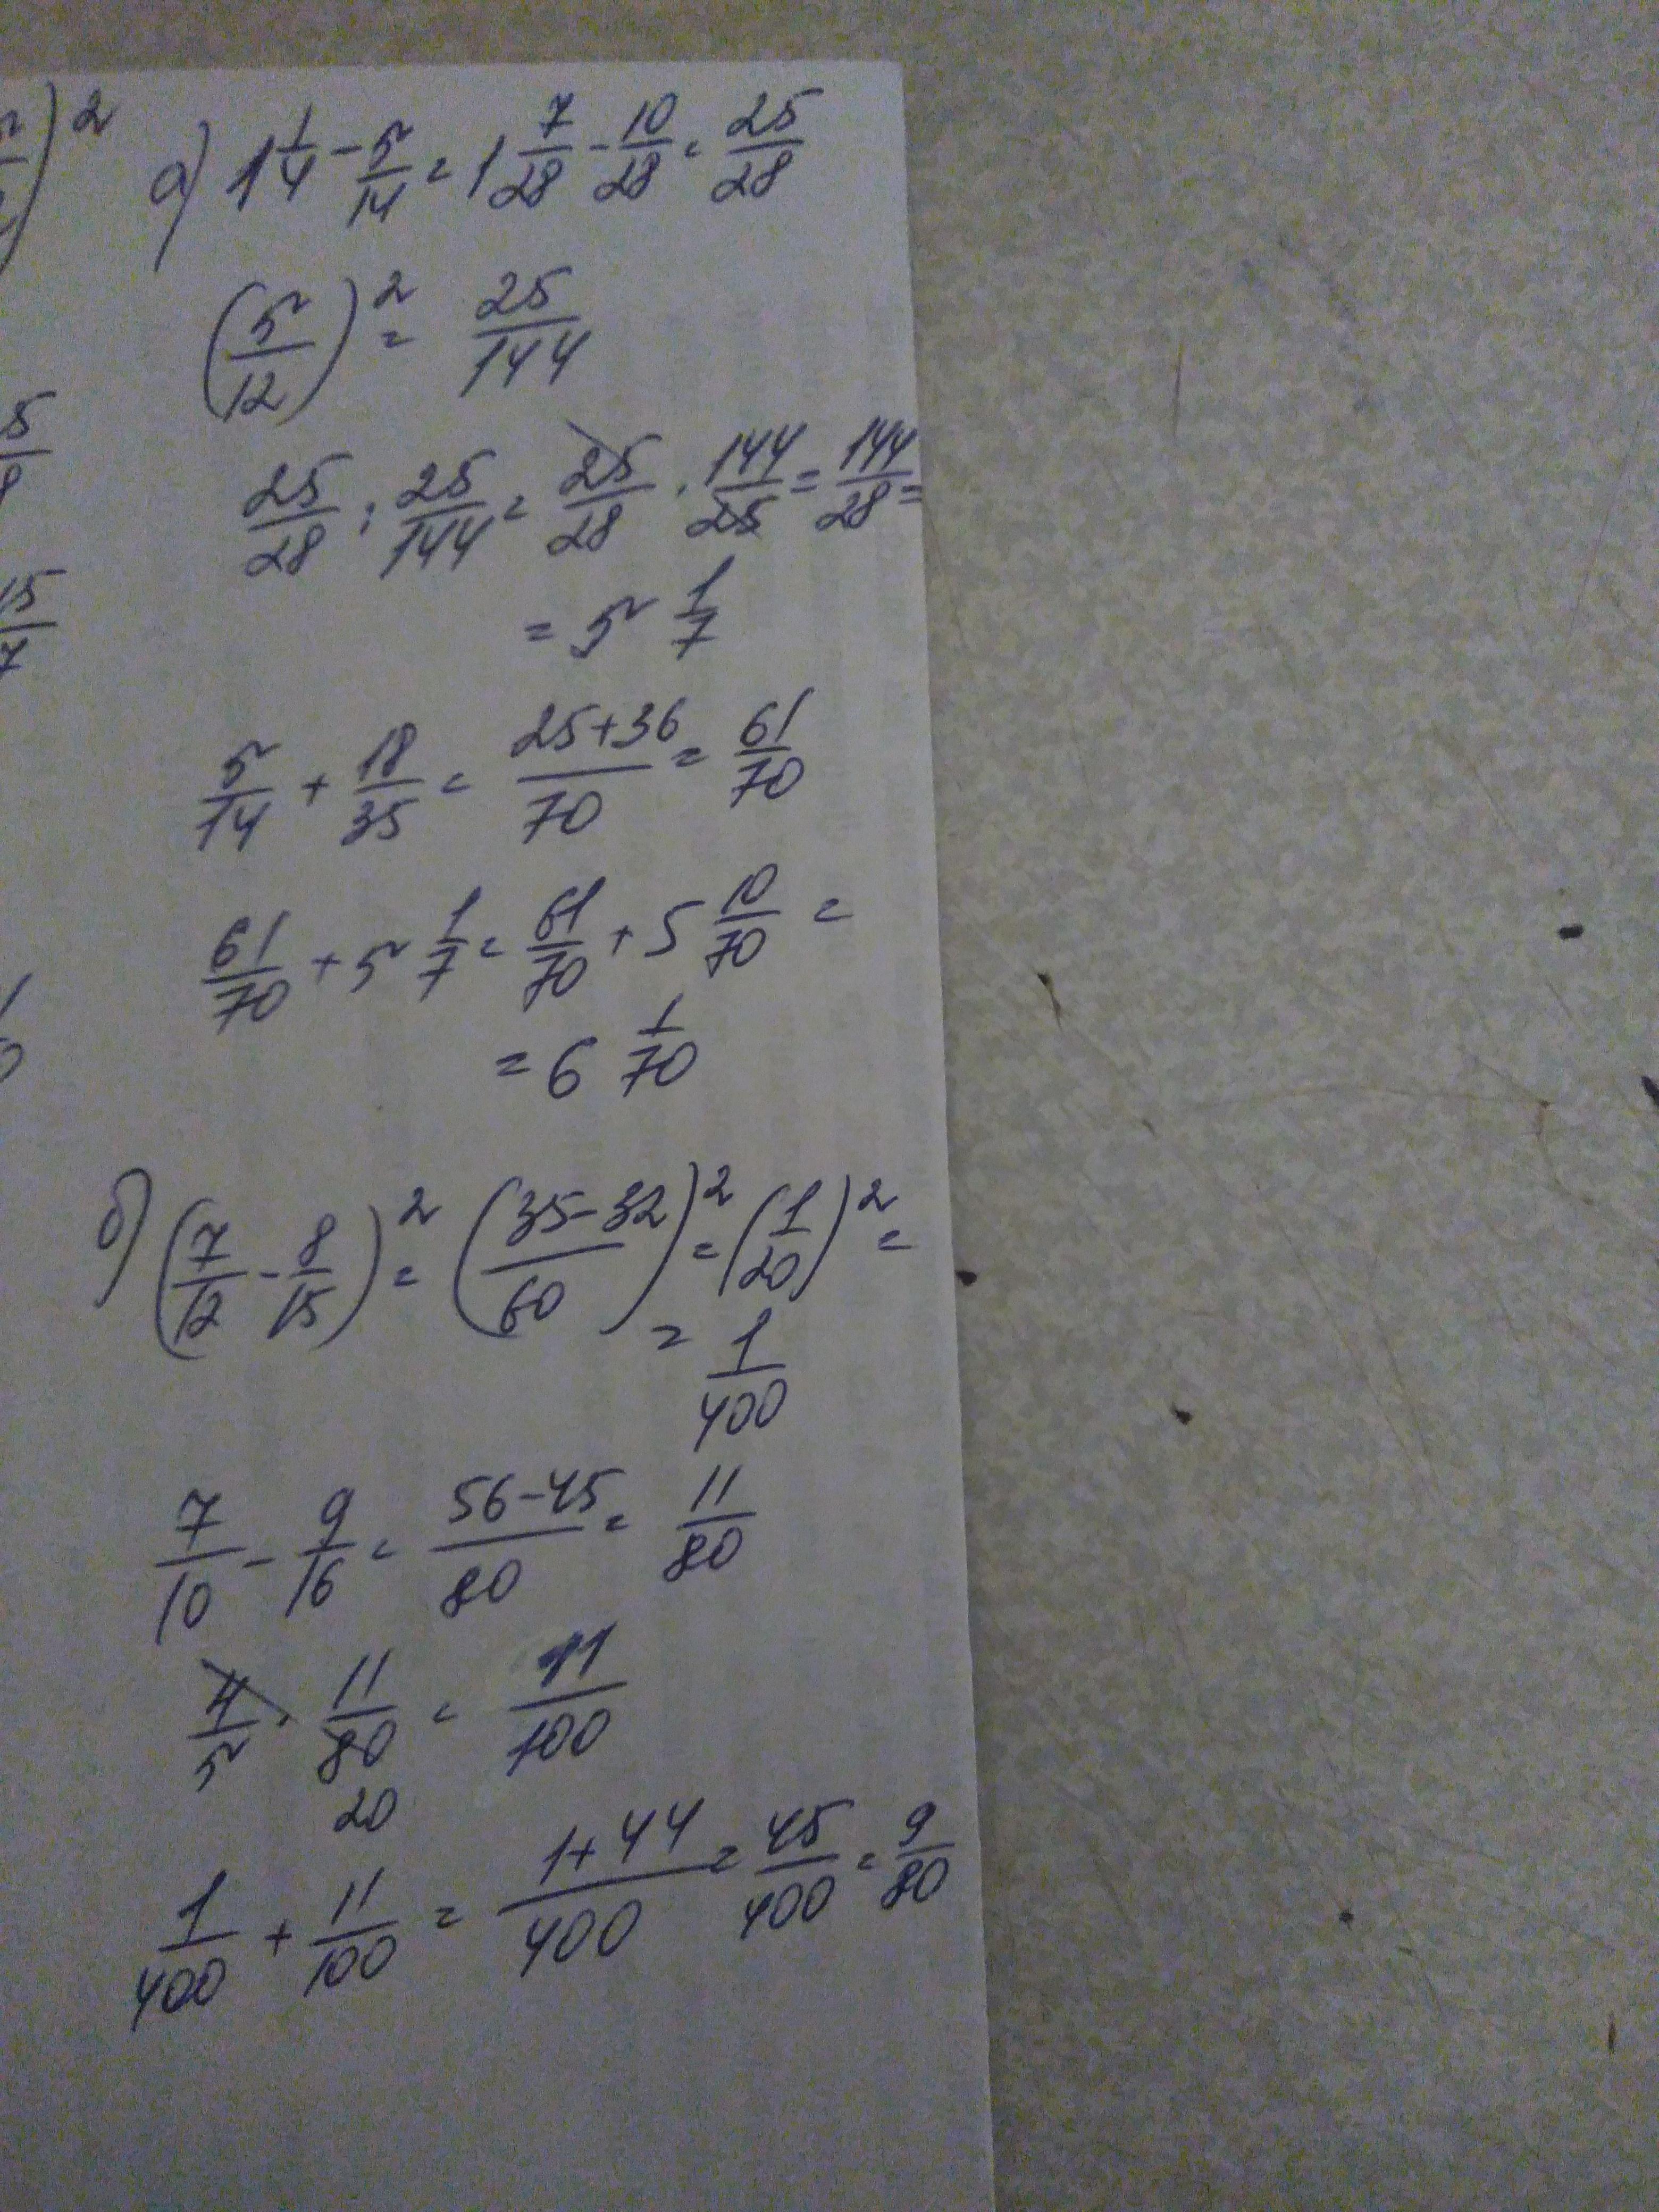 )²
а) 1 1/4 - 5/14 = 1 7/28 - 10/28 = 25/28
(5/12)² = 25/144
25/28 : 25/144 = 25/28 · 144/25 = 144/28 =
= 5 1/7
5/14 + 18/35 = 25+36/70 = 61/70
61/70 + 5 1/7 = 61/70 + 5 10/70 =
= 6 1/70
б) (7/12 - 8/15)² = (35-32/60)² = (1/20)² =
= 1/400
7/10 - 9/16 = 56-45/80 = 11/80
4/5 · 11/80 = 11/100
20
1/400 + 11/100 = 1+44/400 = 45/400 = 9/80